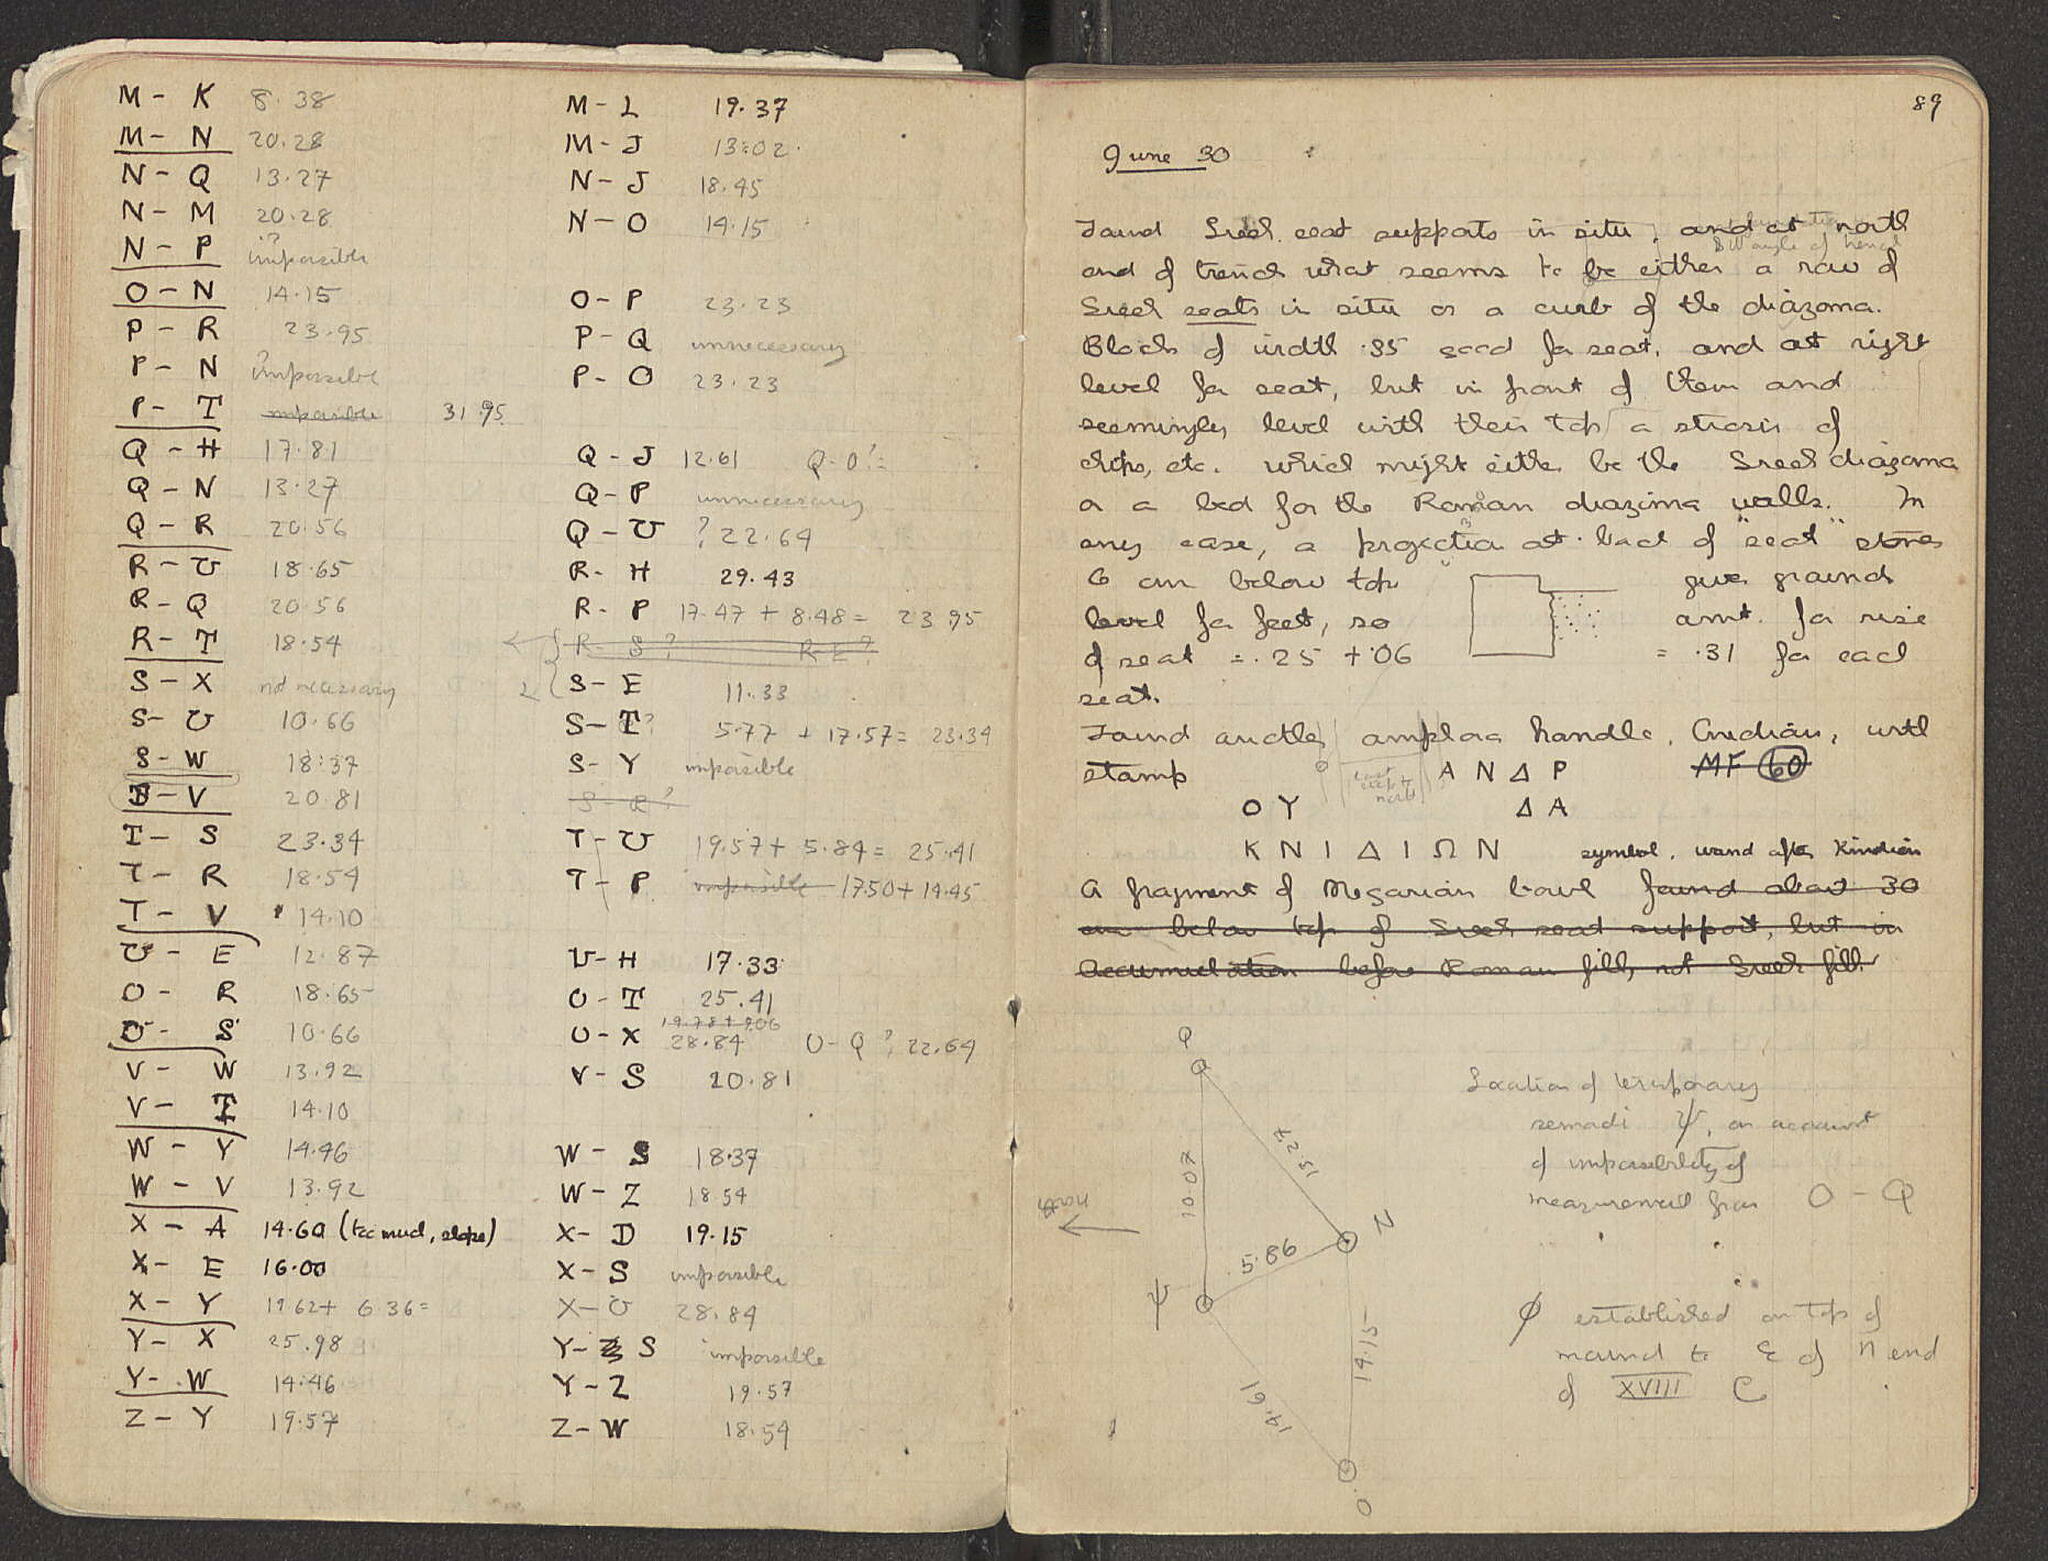 M - K 8.38
M - N 20.28
N - Q 13.27
N - M 20.28
N - P impossible
O - N 14.15
P - R 23.95
P - N impossible
P - T impossible 31.95
Q - H 17.81
Q - N 13.27
Q - R 20.56
R - U 18.65
R - Q 20.56
R - T 18.54
S - X not necessary
S - U 10.66
S - W 18.37
S - V 20.81
T - S 23.34
T - R 18.54
T - V 14.10
U - E 12.87
U - R 18.65
U - S 10.66
V - W 13.92
V - T 14.10
W - Y 14.46
W - V 13.92
X - A 14.60 (too mud, slope)
X - E 16.00
X - Y 19.62 + 6.36 =
Y - X 25.98
Y - W 14.46
Z - Y 19.57
M - L 19.37
M - J 13.02
N - J 18.45
N - O 14.15
O - P 23.23
P - Q unnecessary
P - O 23.23
Q - J 12.61 Q - O? =
Q - P unnecessary
Q - U ? 22.64
R - H 29.43
R - P 17.47 + 8.48 = 23.95
R - S? R - E?
S - E 11.33
S - T 5.77 + 17.57 = 23.34
S - Y impossible
S - R?
T - U 19.57 + 5.84 = 25.41
T - P impossible 17.50 + 14.45
U - H 17.33
U - T 25.41
19.78 + 9.06
U - X 28.84 U - Q? 22.64
V - S 20.81
W - S 18.37
W - Z 18.54
X - D 19.15
X - S impossible
X - U 28.84
Y - S impossible
Y - Z 19.57
Z - W 18.54
89
June 30
Found Greek seat supports in situ, and at north
SW angle of trench
end of trench what seems to be either a row of
Greek seats in situ or a curb of the diazoma.
Blocks of width .35 good for seat, and at right
level for seat, but in front of them and
seemingly level with their top a strosis of
chips, etc. which might either be the Greek diazoma
or a bed for the Roman diazoma walls. In
any case, a projection at back of "seat" stones
6 cm below top give grounds
level for feet, so amt. for rise
of seat = .25 + .06 = .31 for each
seat.
Found another amphora handle, Cnidian, with
stamp ΑΝΔΡ MF 60
ΟΥ ΔΑ
ΚΝΙΔΙΩΝ symbol, wand after Knidion
A fragment of Megarian bowl found about 30
cm below top of Greek seat support, but in
accumulation before Roman fill, not Greek fill.
Q
10.07
N
5.86
Ψ
14.15
O
north
Location of temporary
semadi Ψ, on account
of impossibility of
measurement from O - Q
φ established on top of
mound to E of N end
of XVIII C